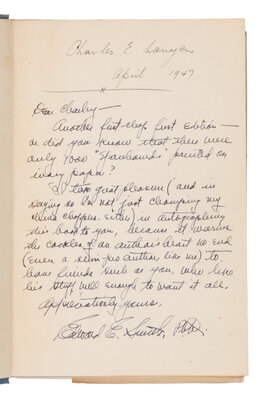 Charles E. Lanyon
April 1947
x
Dear Charley—
Another first-class first edition—
or did you know that there were
only 1000 "Spacehounds" printed on
ivory paper?
I take great pleasure (and in
saying so I'm not just chomping my
choppers, either) in autographing
this book to you, because it warms
the cockles of an author's heart no end
(even a semi-pro author, like me) to
have friends such as you, who like
his stuff well enough to want it all.
Appreciatively yours,
Edward E. Smith, Ph.D.